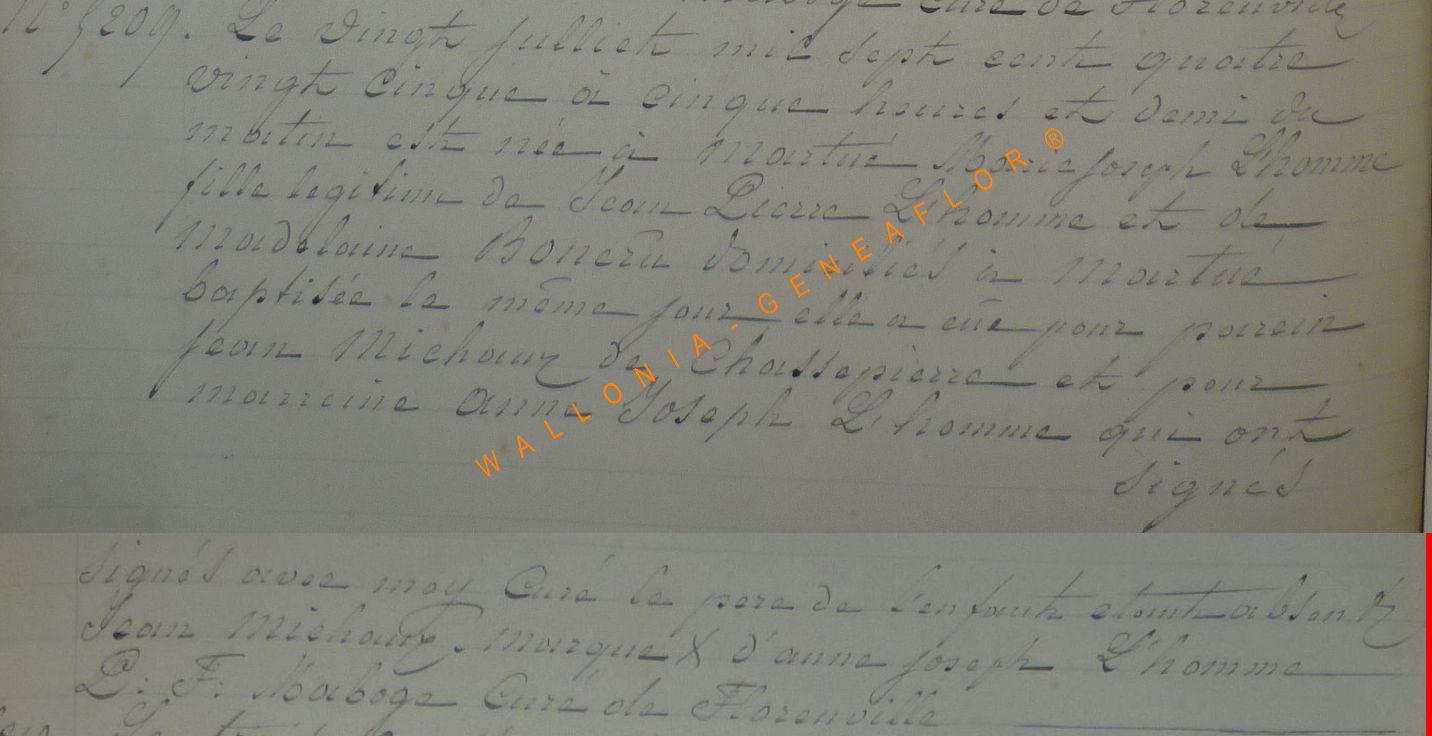 Maboge Curé de Florenville
N° 5209. Le vingt julliet mil sept cent quatre
vingt cinque à cinque heures et demi du
matin est née à Martué Marie Joseph L'homme
fille legitime de Jean Pierre L'homme et de
Madelaine Bonerü domiciliés à Martué
baptisée le même jour elle a eüe pour parein
Jean Michaux de Chassepierre et pour
marreine Anne Joseph L'homme qui ont
signés
signés avec moy Curé le pere de l'enfant etant absent
Jean Michaux, Marque X d'anne joseph L'homme
P: F: Maboge Curé de Florenville
WALLONIA-GENEAFLOR ®